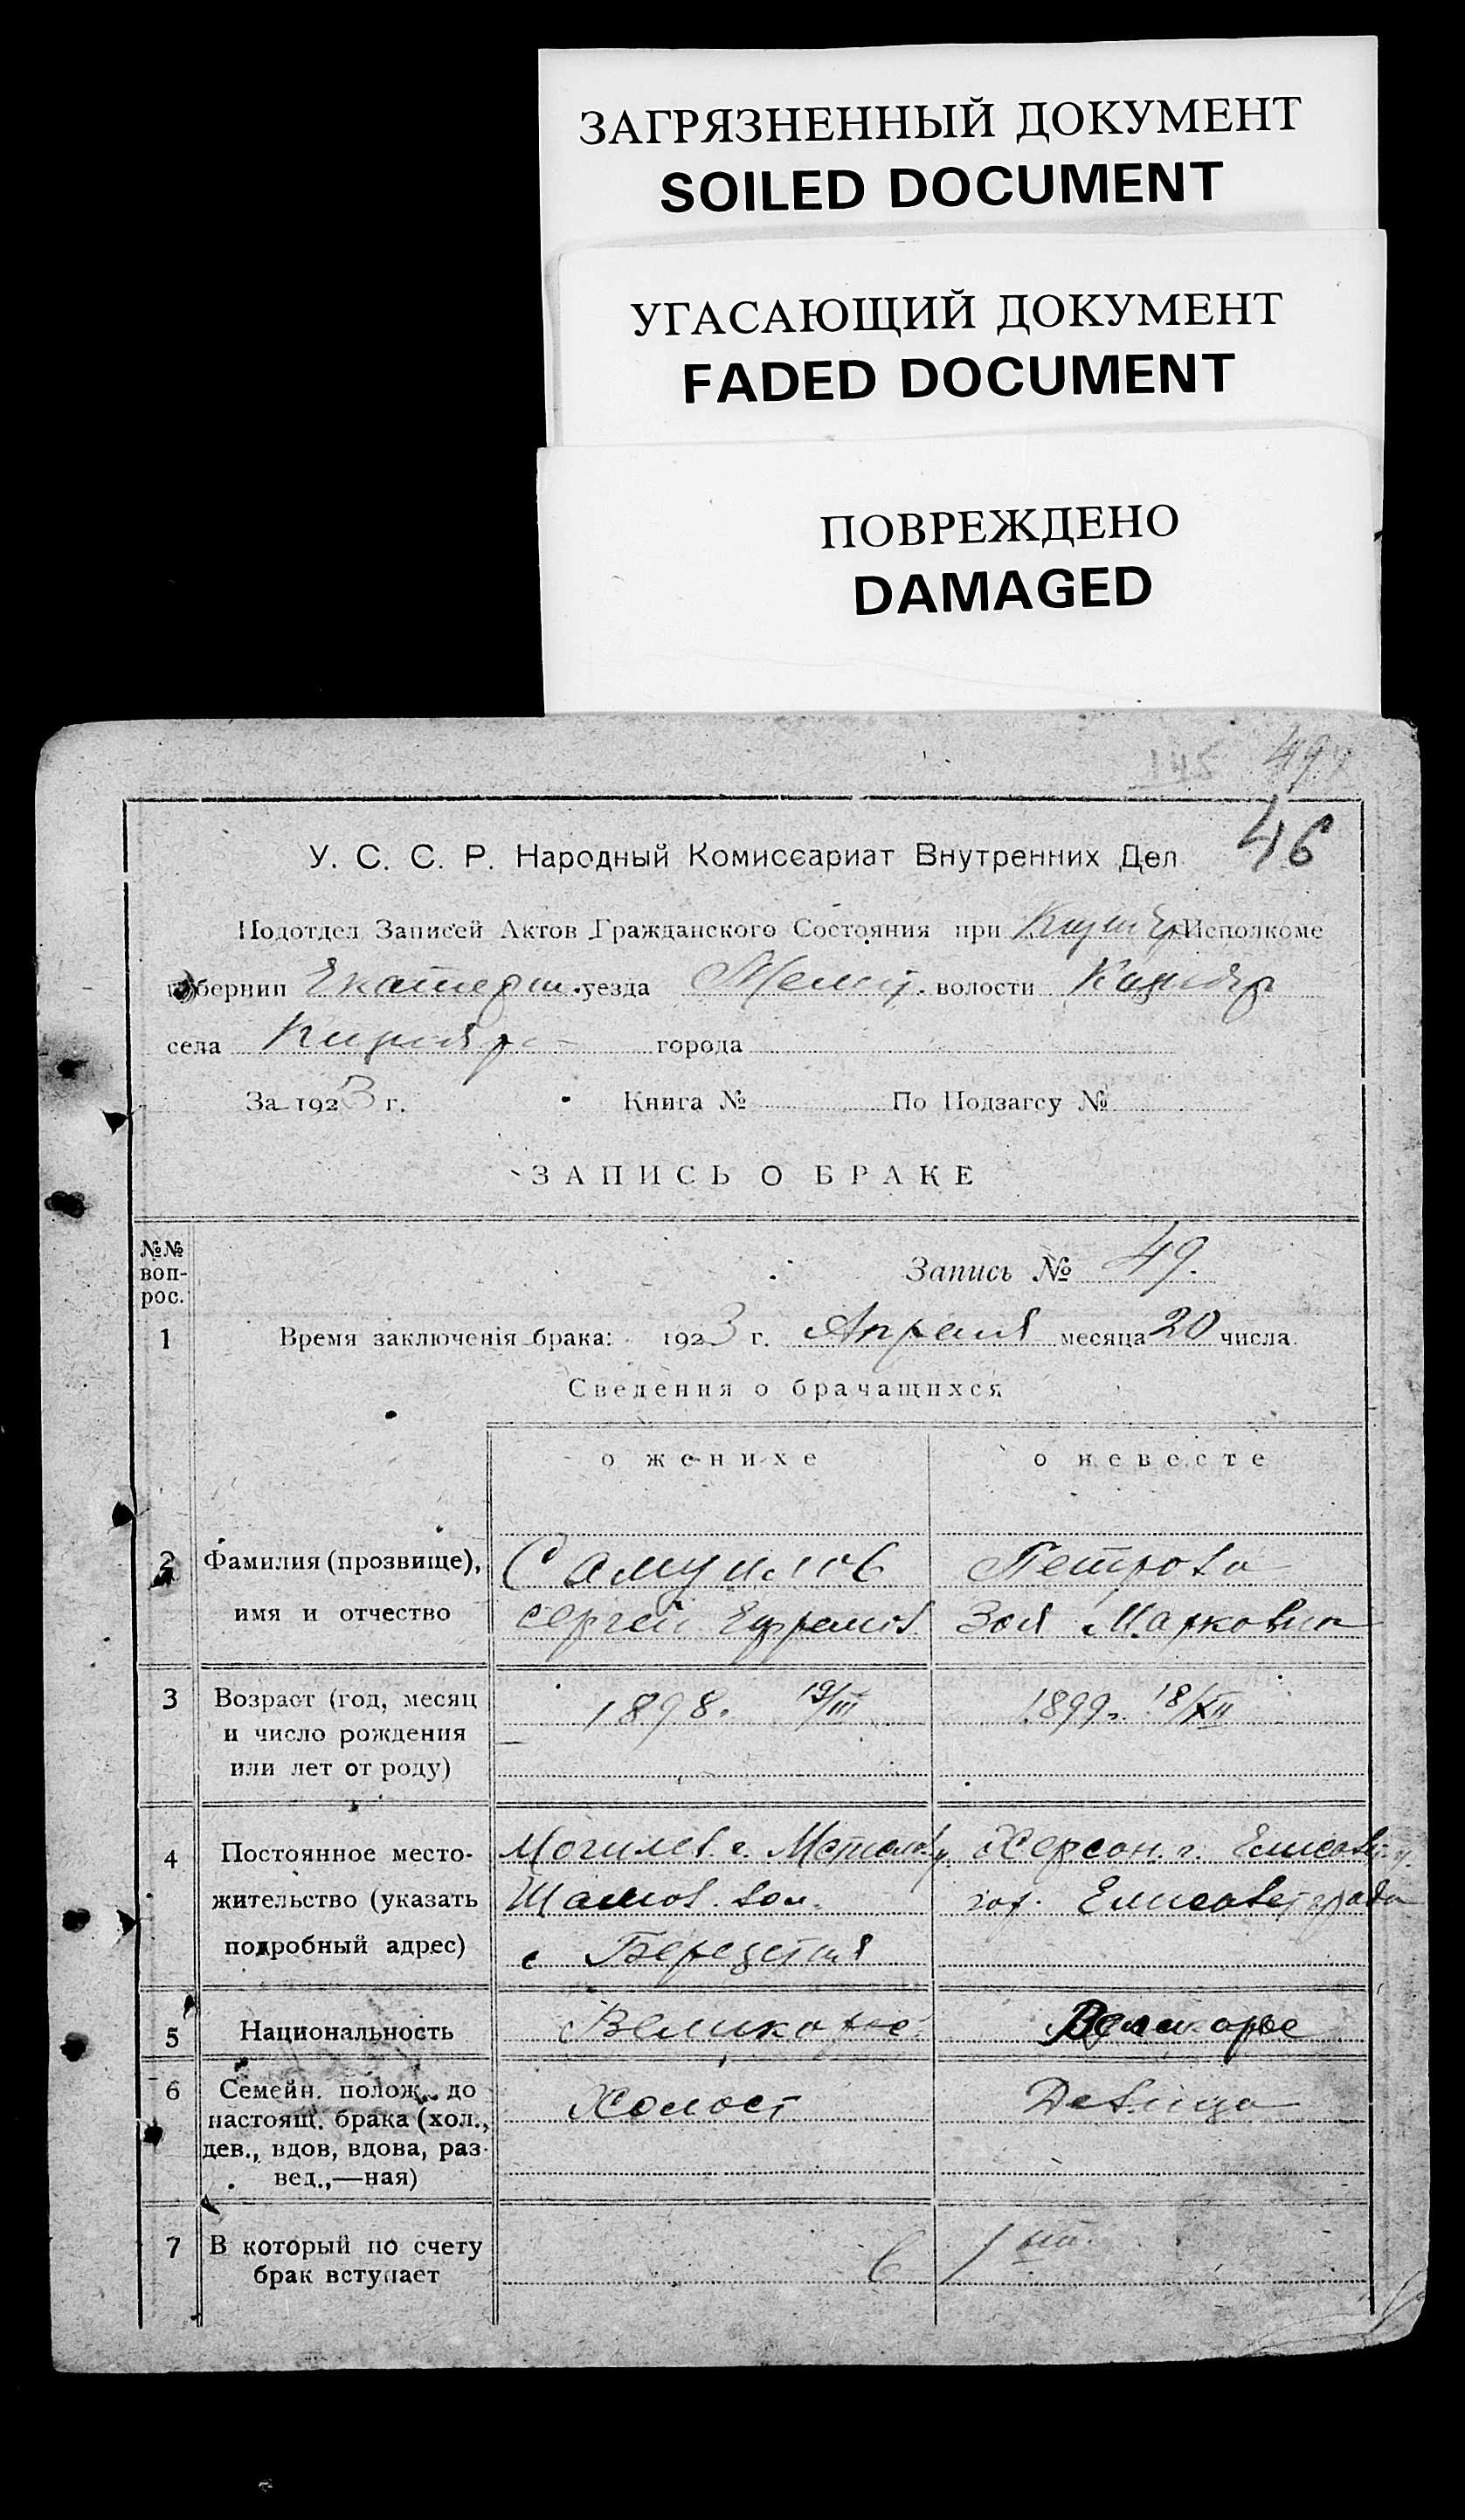 ЗАГРЯЗНЕННЫЙ ДОКУМЕНТ
SOILED DOCUMENT
УГАСАЮЩИЙ ДОКУМЕНТ
FADED DOCUMENT
ПОВРЕЖДЕНО
DAMAGED
145 49
46
У. С. С. Р. Народный Комиссариат Внутренних Дел
Подотдел Записей Актов Гражданского Состояния при Исполкоме
губернии Екатерин. уезда Мелит. волости
села города
За 1923 г. Книга № По Подзагсу №
ЗАПИСЬ О БРАКЕ
№№ вопрос.
Запись № 49.
1 Время заключенія брака: 1923 г. Апреля месяца 20 числа
Сведения о брачащихся
о женихе о невесте
2 Фамилия (прозвище), Самуилов Петрова
имя и отчество Сергей Ефремов. Зоя Марковна
3 Возраст (год, месяц 1898. 19/III 1899. 18/XII
и число рождения
или лет от роду)
4 Постоянное место- Могилев. г. Херсон. г. Елисавет. у.
жительство (указать вол. гор. Елисаветграда
подробный адрес) с
5 Национальность Великорос. Великорос
6 Семейн. полож. до Холост Девица
настоящ. брака (хол.,
дев., вдов, вдова, раз-
вед.,—ная)
7 В который по счету В 1
брак вступает